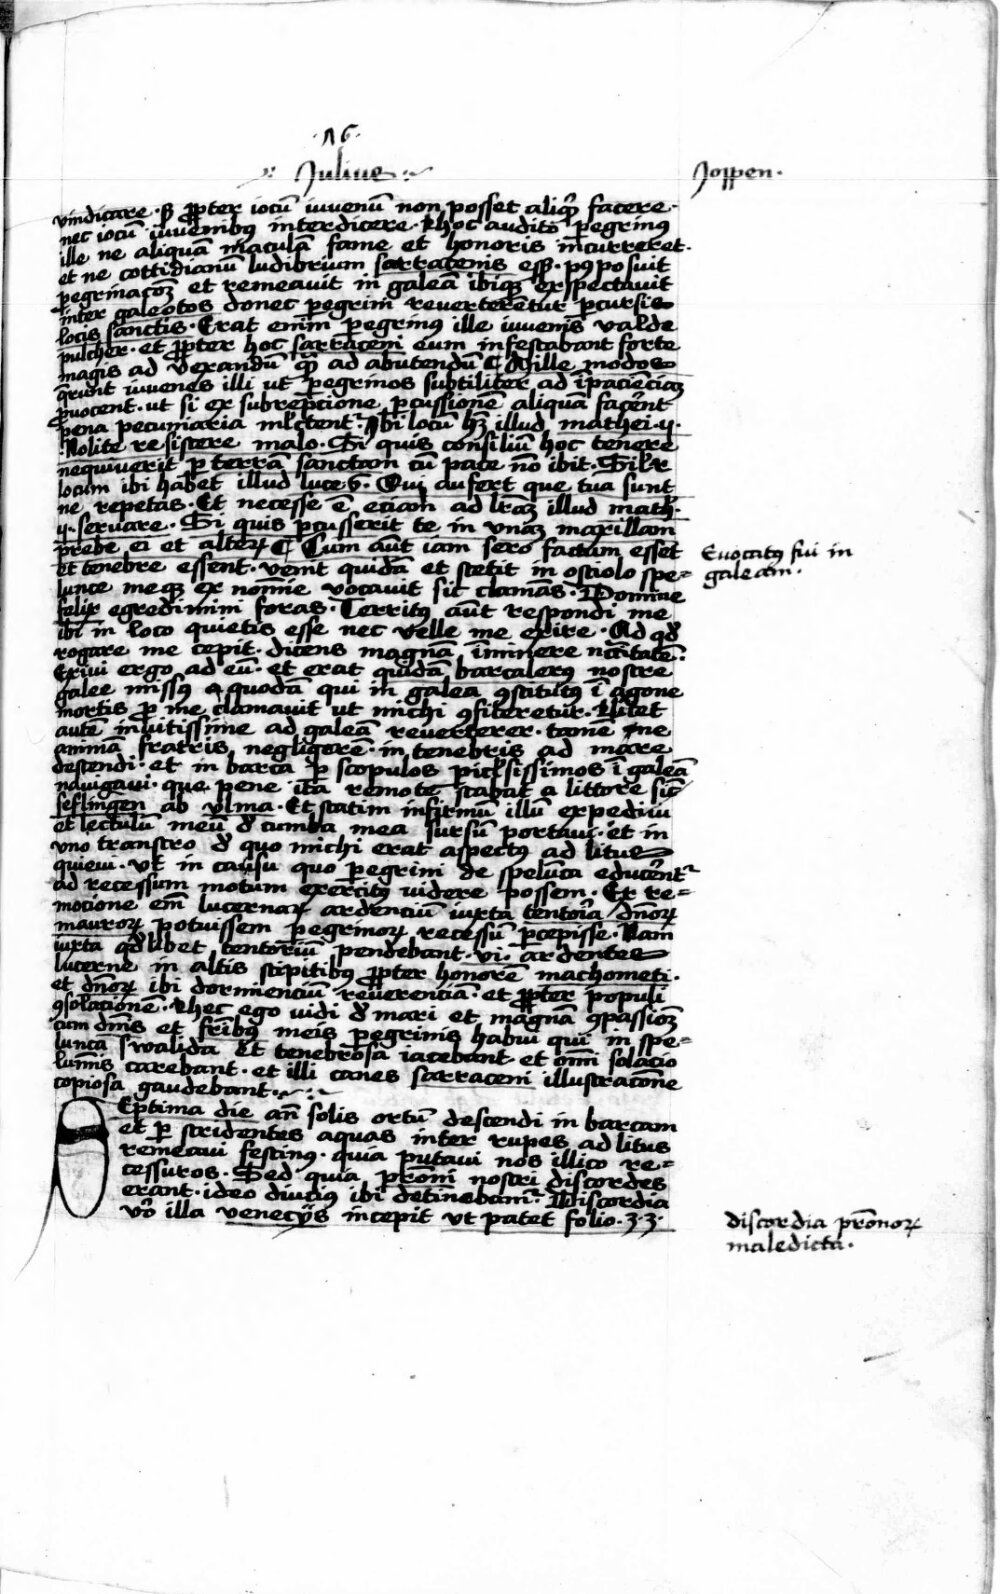 ·76·
Julius
Joppen·
vindicare· Sꝫ ꝓpter iocū iuvenū non posset aliqͥd facere·
nec iocū iuvenibꝰ interdicere· Et hoc audito peregrinꝰ
ille ne aliquā maculā fame et honoris incurreret·
et ne cottidianū ludibrium sarracenis eēt· ꝓposuit
pegrinacōꝫ et remeavit in galeā ibiqꝫ exspectavit
inter galeotos donec pegrini reverterētur pcursis
locis sanctis· Erat enim pegrinꝰ ille iuvenis valde
pulcher· et ꝓpter hoc sarraceni eum infestabant forte
magis ad vexandū qͣꝫ ad abutendū ¶ Mille modos
q̄runt iuvenes illi ut pegrinos subtiliter ad īpacienciaꝫ
ꝓvocent· ut si ex subrepcione pcussionē aliquā facerēt
pena pecuniaria ml̄ctentᷣ· Ibi locū hꝫ illud mathei·ỿ·
Nolite resistere malo· Si quis consiliū hoc tenere
nequiverit p terrā sanctam cū pace nō ibit· Sil̄r
locum ibi habet illud luce·6· Qui aufert que tua sunt
ne repetas· Et necesse ē eciam ad lr̄aꝫ illud math·
ỿ· servare· Si quis pcusserit te in unaꝫ maxillam
prebe ei et alterā ¶ Cum aūt iam sero factum esset
et tenebre essent· venit quidā et stetit in ostiolo spe=
lunce meqꝫ ex nomīe vocavit sic clamās· Domine
felix egredimini foras· Territꝰ aūt respondi me
ibi in loco quietis esse nec velle me exire· Ad qd̄
rogare me cepit· dicens magnā īminere nc̄citatē·
Exivi ergo ad eū· et erat quidā barcalerꝰ nostre
galee missꝰ a quodā qui in galea ꝯstitutꝰ ī agone
mortis p me clamavit ut michi ꝯfiteretur· Licet
autē invitissime ad galeā reverterer· tamē ne
animā fratris negligere· in tenebris ad mare
descendi· et in barca p scopulos piclosissimos ī galeā
navigavi· que pene ita remote stabat a littore sic̄
seflingen ab ulma· Et statim infirmū illū expedivi
et lectulū meū d̄ cumba mea sursū portavi· et in
uno transtro d̄ quo michi erat aspectꝰ ad litus
quievi· Ut in casu quo pegrini de spelūca educerēntᷣ
ad recessum motum exercitꝰ videre possem· Ex re=
mocione em̄ lucernaꝝ ardenciū iuxta tentoria dn̄oꝝ
mauroꝝ potuissem pegrinoꝝ recessū pcepisse· Nam
iuxta qd̄libet tentoriū pendebant·vi· ardentes
lucerne in altis stipitibꝰ ꝓpter honorē machometi·
et dn̄oꝝ ibi dormienciū reverenciā· et ꝓpter populi
ꝯsolacionē· Hec ego vidi d̄ mari et magnā ꝯpassionꝫ
cum dn̄is et fr̄ibꝰ meis pegrinis habui qui in spe=
lunca squalida et tenebrosa iacebant et omi solacio
luminis carebant· et illi canes sarraceni illustracōne
copiosa gaudebant·
Septima die an̄ solis ortū descendi in barcam
et p stridentes aquas inter rupes ad litus
remeavi festinꝰ· quia putavi nos illico re=
cessuros· Sed quia pr̄oni nostri discordes
erant· ideo diucius ibi detinebamᷣ· Discordia
vō illa venecijs incepit ut patet folio·33·
Evocatꝰ fui in
galeam·
discordia pr̄onoꝝ
maledicta·